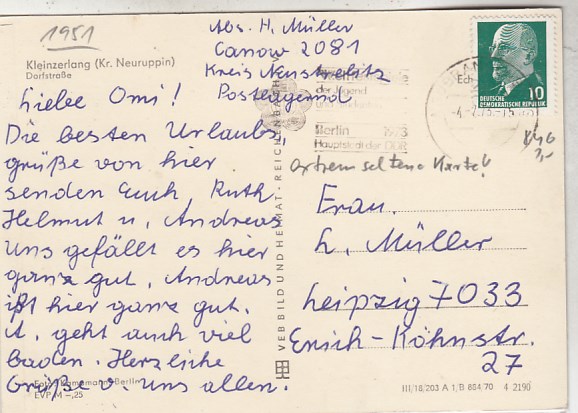 1951
Kleinzerlang (Kr. Neuruppin)
Dorfstraße
Abs. H. Müller
Canow 2081
Kreis Neustrelitz
Postagend
Liebe Omi!
Die besten Urlaubs,
grüße von hier
senden Euch, Ruth
Helmut u, Andreas
Uns gefällt es hier
ganz gut, Andreas
ißt hier ganz gut.
A. geht auch viel
baden. Herzliche
Grüße v. uns allen.
Foto: Kampmann, Berlin
EVP M -,25
VEB BILD UND HEIMAT · REICHENBACH i. V.
der Jugend
Berlin 1973
Hauptstadt der DDR
10
DEUTSCHE
DEMOKRATISCHE REPUBLIK
extrem seltene Karte!
Frau.
L. Müller
Leipzig 7033
Erich-Köhnstr.
27
III/18/203 A 1/B 884/70 4 2190